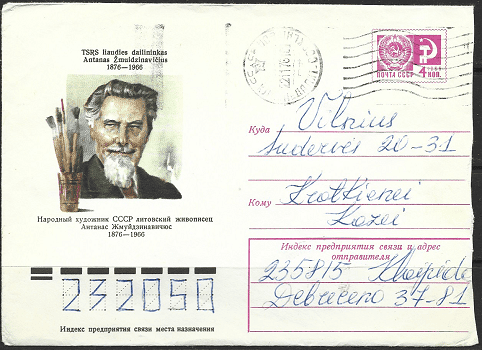 TSRS liaudies dailininkas
Antanas Žmuidzinavičius
1876—1966
ПОЧТА СССР
4 КОП.
1966
Куда Vilnius
Sudervės 20-31
Кому Krotkienei
Kazei
Народный художник СССР литовский живописец
Антанас Жмуйдзинавичюс
1876—1966
Индекс предприятия связи и адрес
отправителя
235815 Klaipėda
Debreceno 37-81
232050
Индекс предприятия связи места назначения